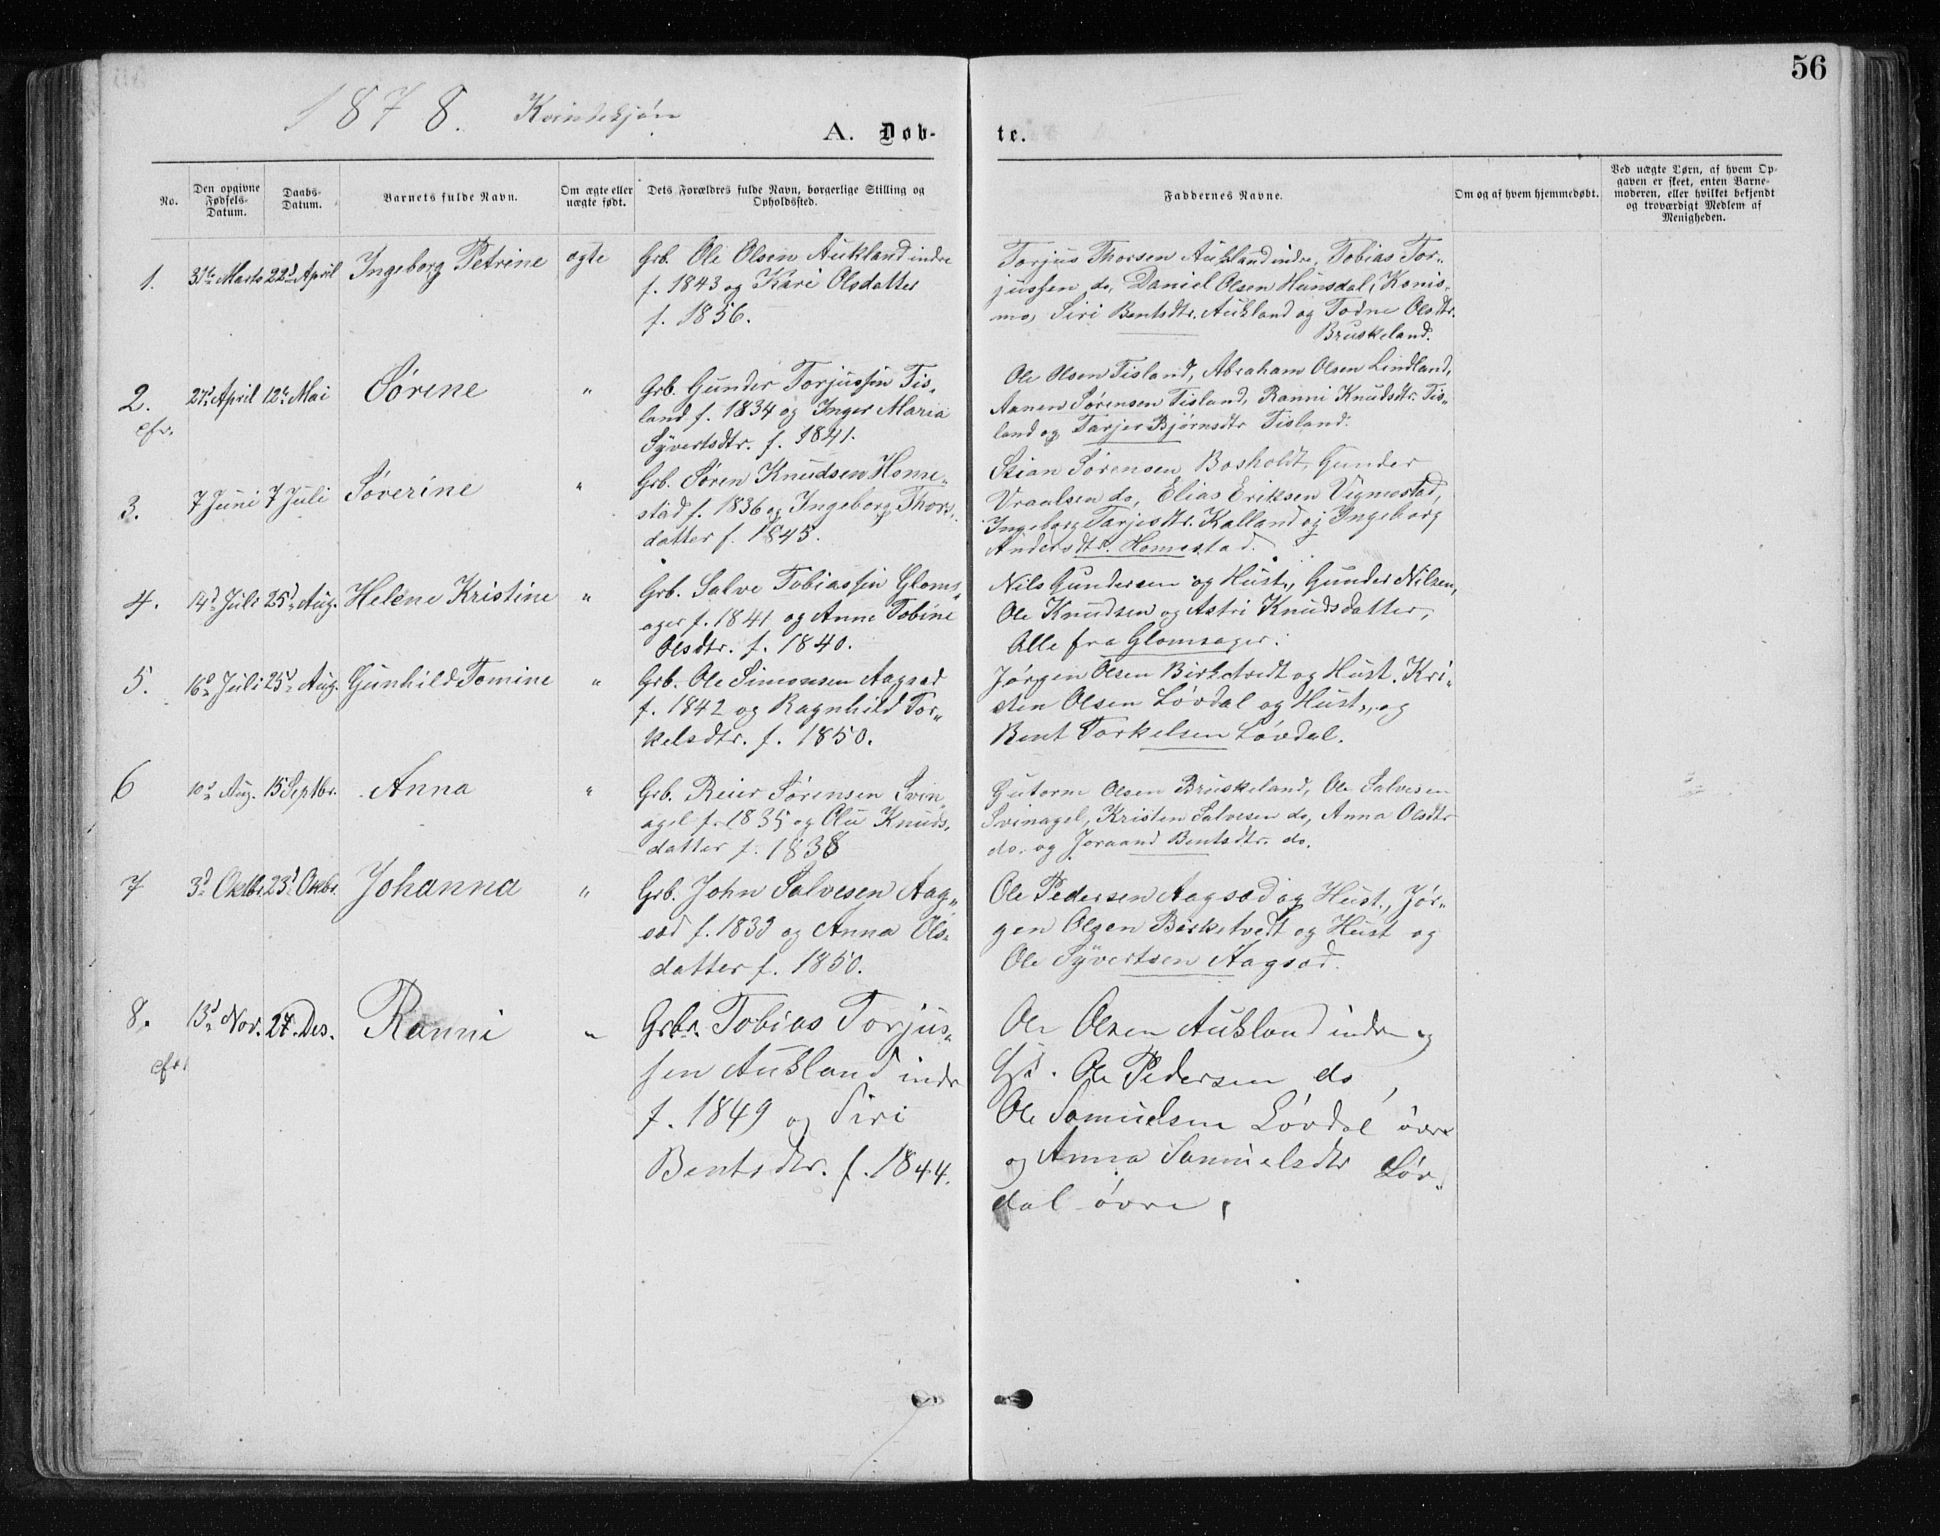 56
1878. Kvindekjøn
A. Døb-
te.
No.
Den opgivne Fødsels-Datum.
Daabs-Datum.
Barnets fulde Navn.
Om ægte eller uægte født.
Dets Forældres fulde Navn, borgerlige Stilling og Opholdssted.
Faddernes Navne.
Om og af hvem hjemmedøbt.
Ved uægte Børn, af hvem Opgaven er skeet, enten Barnemoderen, eller hvilket bekjendt og troværdigt Medlem af Menigheden.
1. 31te Marts 22d April Ingeborg Petrine ægte
Grb. Ole Olsen Aukland indre
f. 1843 og Kari Olsdatter
f. 1856.
Torjus Thorsen Aukland indre, Tobias Tor-
jussen do, Daniel Olsen Hunsdal, Konis-
mo, Siri Bentsdtr. Aukland og Todne Olsdtr.
Bruskeland.
2. 27d April 12te Mai Sørene "
cfr.
Grb. Gunder Torjussen Tis-
land f. 1834 og Inger Maria
Syvertsdtr. f. 1841.
Ole Olsen Tisland, Abraham Olsen Lindland,
Aanen Sørensen Tisland, Ranni Knudsdtr. Tis-
land og Tarjer Bjørnsdtr Tisland.
3. 7 Juni 7 Juli Søverine "
Grb. Søren Knudsen Home-
stad f. 1836 og Ingeborg Thors-
datter f. 1845.
Stian Sørensen Bosholdt, Gunder
Vraalsen do, Elias Eriksen Vigmostad,
Ingeborg Tarjesdtr. Kalland og Ingeborg
Andersdtr. Homestad.
4. 14d Juli 25d Aug. Helene Kristine "
Grb. Salve Tobiassen Gloms-
ager f. 1841 og Anne Tobine
Olsdtr. f. 1840.
Nils Gundersen og Hust., Gunder Nilsen,
Ole Knudsen og Astri Knudsdatter,
Alle fra Glomsager.
5. 16d Juli 25d Aug. Gunhild Tomine "
Grb. Ole Simonsen Aagsæd
f. 1842 og Ragnhild Tor-
kelsdtr. f. 1850.
Jørgen Olsen Birketvedt og Hust. Kri-
sten Olsen Løvdal og Hust., og
Bent Torkelsen Løvdal.
6 10d Aug. 15 Septbr. Anna "
Grb. Reier Sørensen Svin-
agel f. 1835 og Olu Knuds-
datter f. 1838
Gutorm Olsen Bruskeland, Ole Salvesen
Svinagel, Kristen Salvesen do, Anna Olsdtr
do. og Joraand Bentsdtr. do.
7 3d Oktbr 23d Oktbr. Johanna "
Grb. John Salvesen Aag-
sæd f. 1833 og Anna Ols-
datter f. 1850.
Ole Pedersen Aagsæd og Hust., Jør-
gen Olsen Birketvedt og Hust og
Ole Syvertsen Aagsæd.
8. 13d Nov. 27. Des. Ranni "
cfr.
Grbr. Tobias Torjus-
sen Aukland indr
f. 1849 og Siri
Bentsdtr. f. 1844.
Ole Olsen Aukland indre og
Ole Pedersen do,
Ole Samuelsen Løvdal øvre
og Anna Samuelsdtr Løv-
dal øvre.